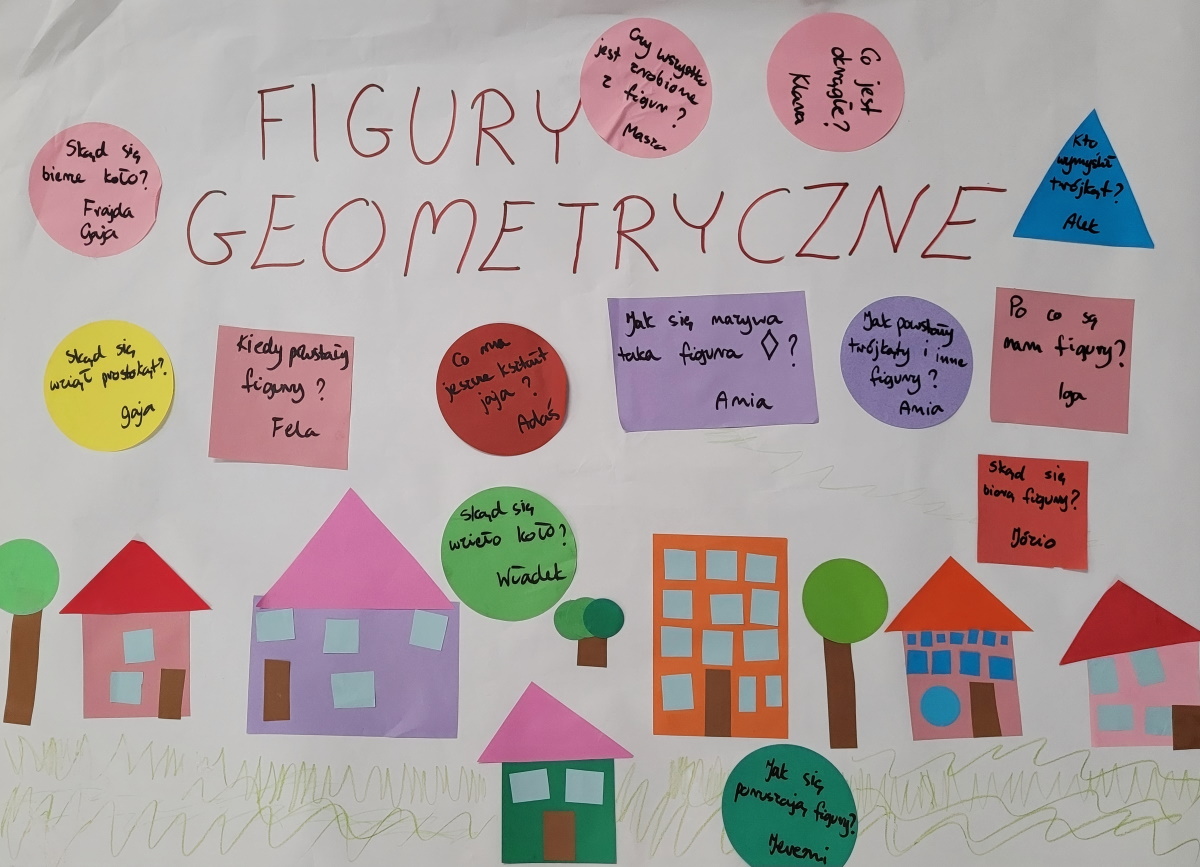 FIGURY
GEOMETRYCZNE
Czy wszystko
jest zrobione
z figur?
Masza
Co jest
okrągłe?
Klara
Skąd się
bierze koło?
Frajda
Gaja
Kto
wymyślił
trójkąt?
Alek
Skąd się
wziął prostokąt?
Gaja
Kiedy powstały
figury?
Fela
Co ma
jeszcze kształt
jaja?
Adaś
Jak się nazywa
taka figura ?
Ania
Jak powstały
trójkąty i inne
figury?
Ania
Po co są
nam figury?
Iga
Skąd się
biorą figury?
Józio
Skąd się
wzięło koło?
Władek
Jak się
poruszają figury?